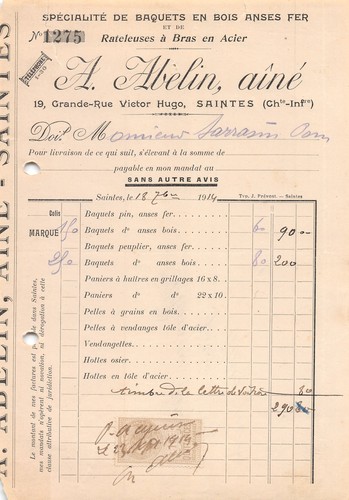 SPÉCIALITÉ DE BAQUETS EN BOIS ANSES FER
ET DE
Râteleuses à Bras en Acier
N° 1275
TÉLÉPHONE
A. Abelin, aîné
19, Grande-Rue Victor Hugo, SAINTES (Chte-Infre)
Doit Monsieur Sarrasin
Pour livraison de ce qui suit, s'élevant à la somme de
payable en mon mandat au
SANS AUTRE AVIS
Saintes, le 18 7bre 1914 Typ. J. Prévost. - Saintes
Colis
MARQUE
Baquets pin, anses fer
150 Baquets d° anses bois 60 90
Baquets peuplier, anses fer
250 Baquets d° anses bois 80 200
Paniers à huîtres en grillages 16 x 8
Paniers d° d° 22 x 10
Pelles à grains en bois
Pelles à vendanges tôle d'acier
Vendangettes
Hottes osier
Hottes en tôle d'acier
timbre de la lettre de voiture 80
290 80
1914
A. ABELIN, AINÉ - SAINTES
Le montant de mes factures est payable dans Saintes,
mes mandats n'opèrent ni novation, ni dérogation à cette
clause attributive de juridiction.